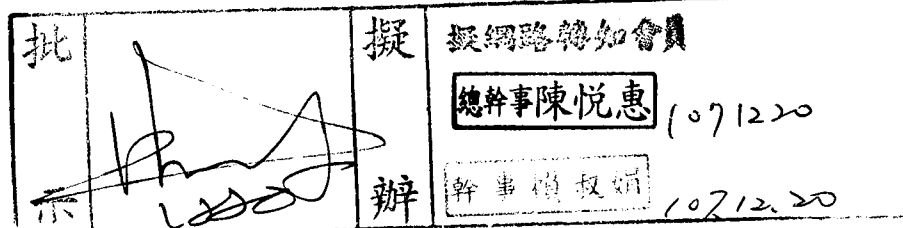 批示
擬辦
擬網路轉知會員
總幹事陳悦惠 1071220
幹事 淑娟 107.12.20